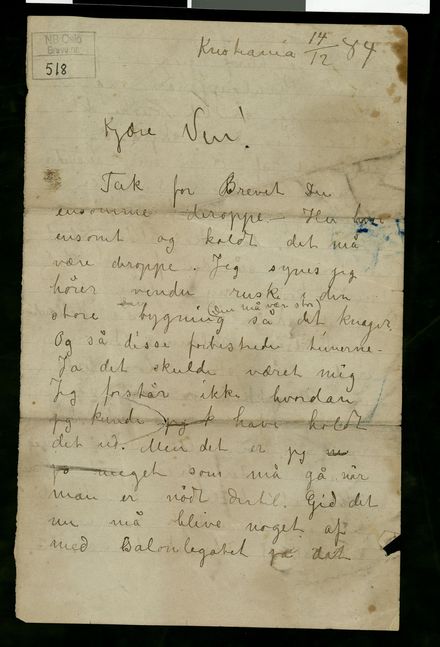 NB Oslo
Brevs. nr.
518
Kristiania 14/12 84
Kjære Ven!
Tak for Brevet Du
ensomme deroppe. – Hu hvor
ensomt og koldt det må
være deroppe. Jeg synes jeg
hører vinden ruske i den
store bygning (den må være stor) så det knager
Og så disse forbistrede timerne –
Ja det skulde været mig
Jeg forstår ikke hvordan
jeg kunde have holdt
det ud. Men det er jo
meget som må gå når
man er nødt dertil. Gid det
nu må blive noget af
med Salonlegatet så dat